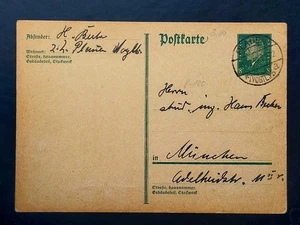 Postkarte
Absender: H.
Wohnort: z. Zt. Plauen Vogtl.
Straße, Hausnummer,
Gebäudeteil, Stockwerk
Herrn
stud. ing. Hans
in München
Adelheidstr.
Straße, Hausnummer,
Gebäudeteil, Stockwerk